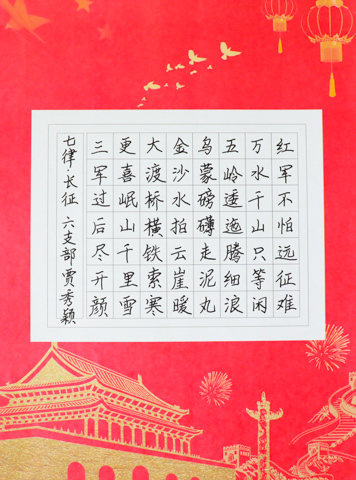 红军不怕远征难
万水千山只等闲
五岭逶迤腾细浪
乌蒙磅礴走泥丸
金沙水拍云崖暖
大渡桥横铁索寒
更喜岷山千里雪
三军过后尽开颜
七律·长征 六支部 贾秀颖